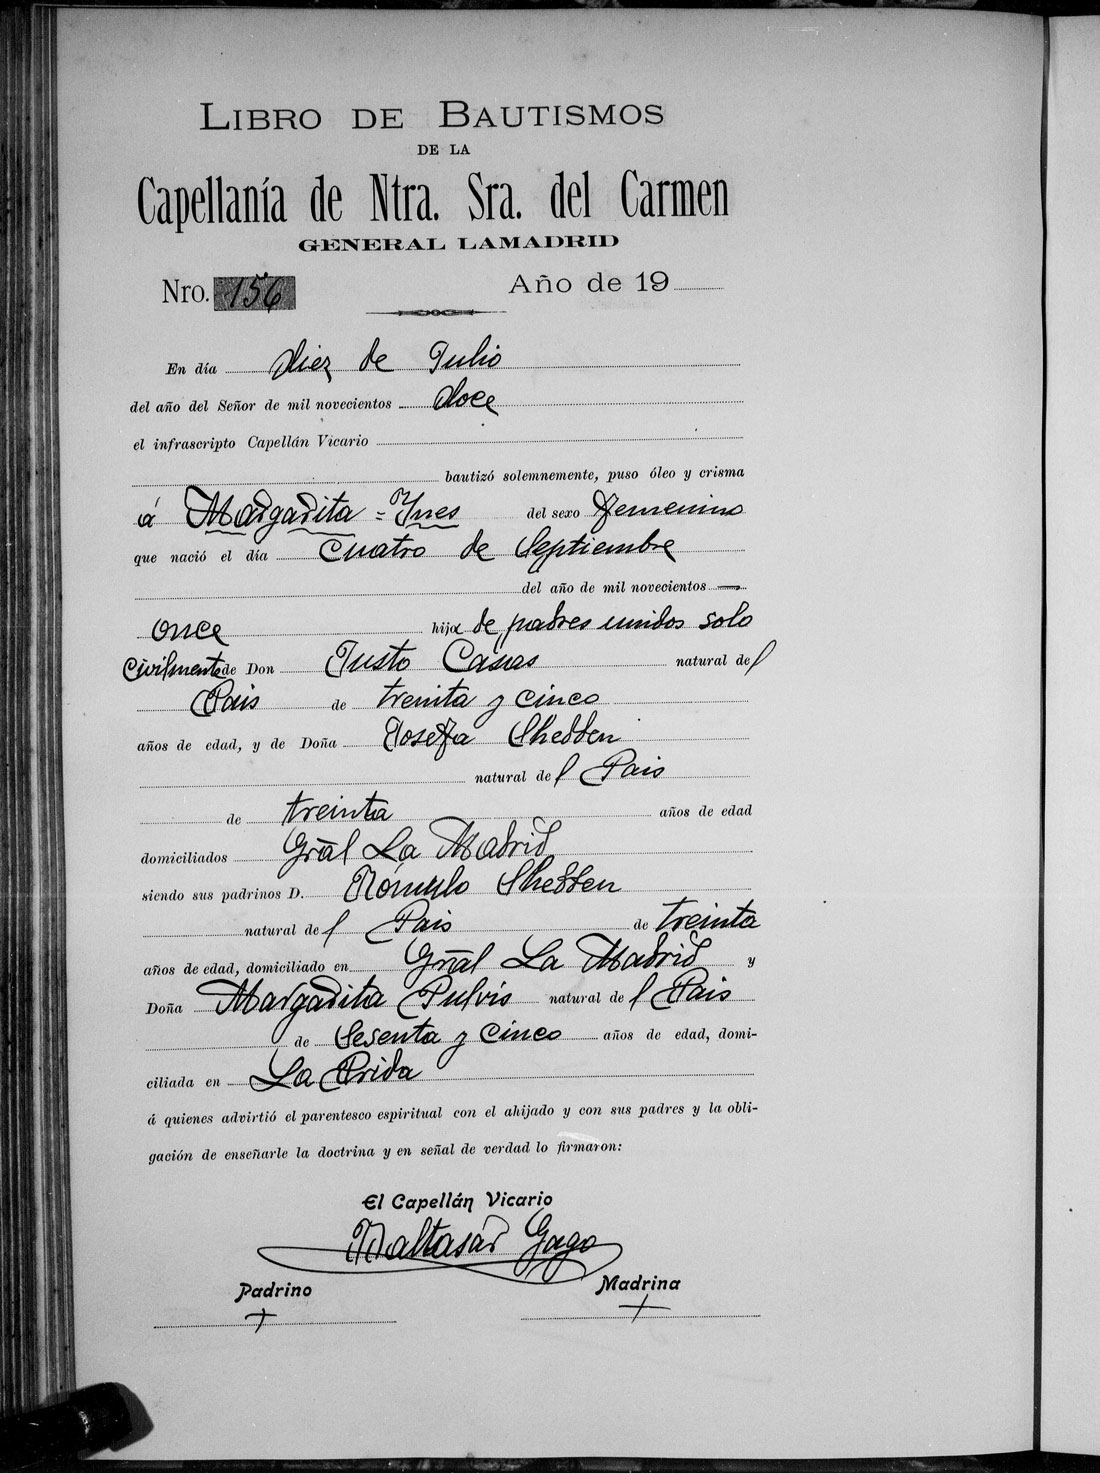 LIBRO DE BAUTISMOS
DE LA
Capellanía de Ntra. Sra. del Carmen
GENERAL LAMADRID
Nro. 156 Año de 19
En día diez de Julio
del año del Señor de mil novecientos doce
el infrascripto Capellán Vicario
bautizó solemnemente, puso óleo y crisma
á Margarita = Ynes del sexo femenino
que nació el día Cuatro de Septiembre
del año de mil novecientos —
once hija de padres unidos solo
civilmente de Don Justo Casas natural del
Pais de treinta y cinco
años de edad, y de Doña Josefa Shedden
natural del Pais
de treinta años de edad
domiciliados Gral La Madrid
siendo sus padrinos D. Rómulo Shedden
natural del Pais de treinta
años de edad, domiciliado en Gral La Madrid y
Doña Margarita Pulvis natural del Pais
de Sesenta y cinco años de edad, domi-
ciliada en La Prida
á quienes advirtió el parentesco espiritual con el ahijado y con sus padres y la obli-
gación de enseñarle la doctrina y en señal de verdad lo firmaron:
El Capellán Vicario
Baltasár Gago
Padrino Madrina
+ +